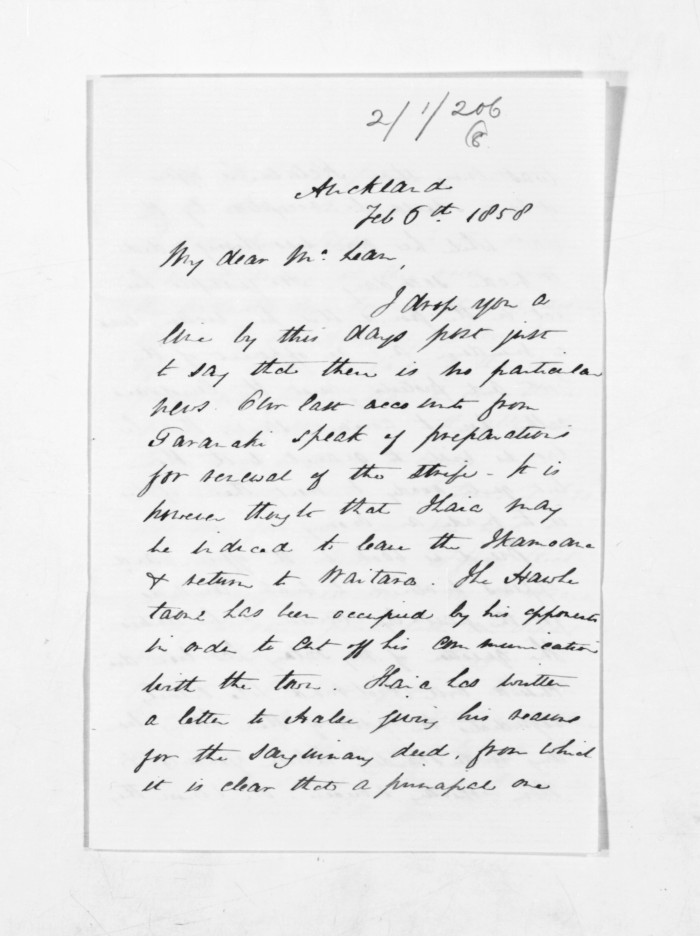 2/1/206
6
Auckland
Feb 6th 1858
My dear McLean,
I drop you a
line by this days post just
to say that there is no particular
news. Our last accounts from
Taranaki speak of preparations
for renewal of the strife - It is
however thought that Ihaia may
be induced to leave the Ikamoana
& return to Waitara. The
has been occupied by his opponents
in order to cut off his communication
with the town. Ihaia has written
a letter to Halse giving his reasons
for the sanguinary deed, from which
it is clear that a principal one